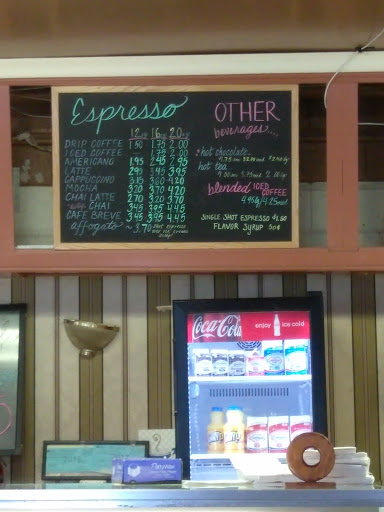 Espresso
12oz 16oz 20oz
DRIP COFFEE 1.50 1.75 2.00
ICED COFFEE 1.75 2.00
AMERICANO 1.95 2.45 2.95
LATTE 2.95 3.45 3.95
CAPPUCCINO 3.15 3.60 4.20
MOCHA 3.20 3.70 4.20
CHAI LATTE 2.70 3.20 3.70
CHAI 3.45 3.95 4.45
CAFE BREVE 3.45 3.95 4.45
affogato ~ 3.70
OTHER
beverages....
hot chocolate
hot tea
blended ICED
COFFEE
SINGLE SHOT ESPRESSO
FLAVOR SYRUP 50¢
Coca-Cola enjoy ice cold